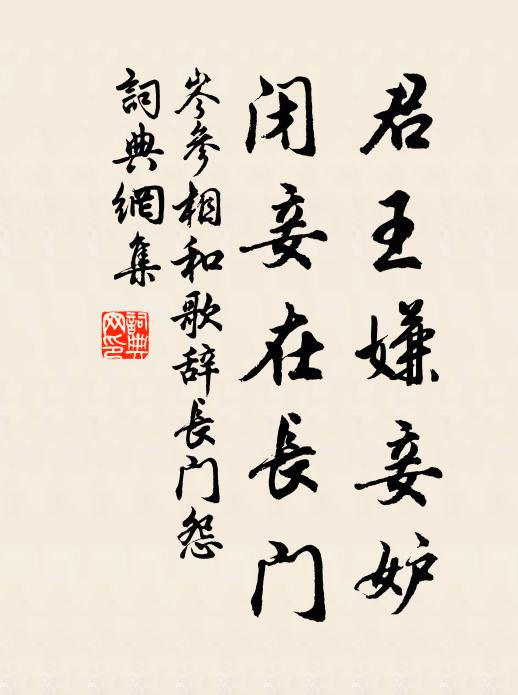 君王嫌妾妒
闭妾在長门
岑參相和歌辞長门怨
詞典網集
詞典
网印